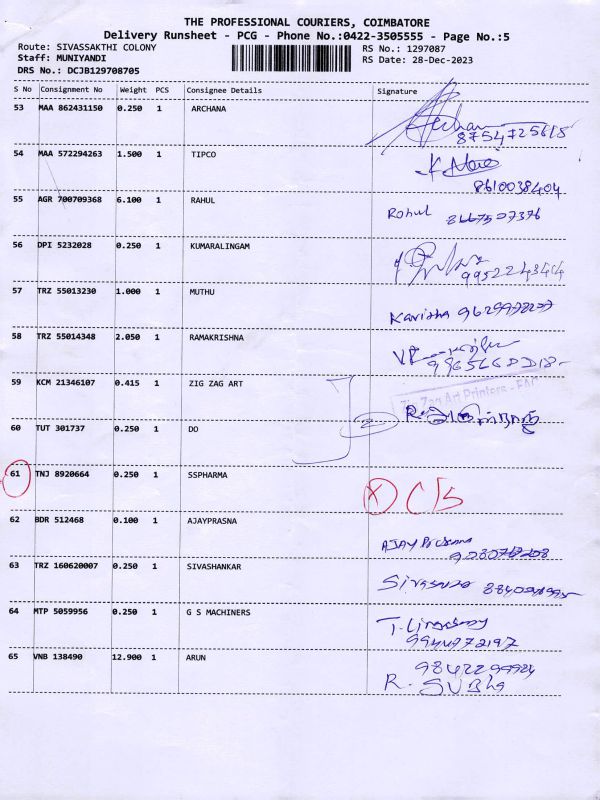 THE PROFESSIONAL COURIERS, COIMBATORE
Delivery Runsheet - PCG - Phone No.:0422-3505555 - Page No.:5
Route: SIVASAKTHI COLONY RS No.: 1297087
Staff: MUNIYANDI RS Date: 28-Dec-2023
DRS No.: DCJB129708705
S No Consignment No Weight PCS Consignee Details Signature
53 MAA 862431150 0.250 1 ARCHANA
8754725618
54 MAA 572294263 1.500 1 TIPCO
8610038404
55 AGR 700709368 6.100 1 RAHUL Rohul 8667507376
56 DPI 5232028 0.250 1 KUMARALINGAM
9952243414
57 TRZ 55013230 1.000 1 MUTHU Kavitha
58 TRZ 55014348 2.050 1 RAMAKRISHNA
59 KCM 21346107 0.415 1 ZIG ZAG ART
Zig Zag Art Printers
60 TUT 301737 0.250 1 DO
61 TNJ 8920664 0.250 1 SSPHARMA X C/S
62 BDR 512468 0.100 1 AJAYPRASNA
AJAY
63 TRZ 160620007 0.250 1 SIVASHANKAR
64 MTP 5059956 0.250 1 G S MACHINERS
9944972197
65 VNB 138490 12.900 1 ARUN
R. SUBha